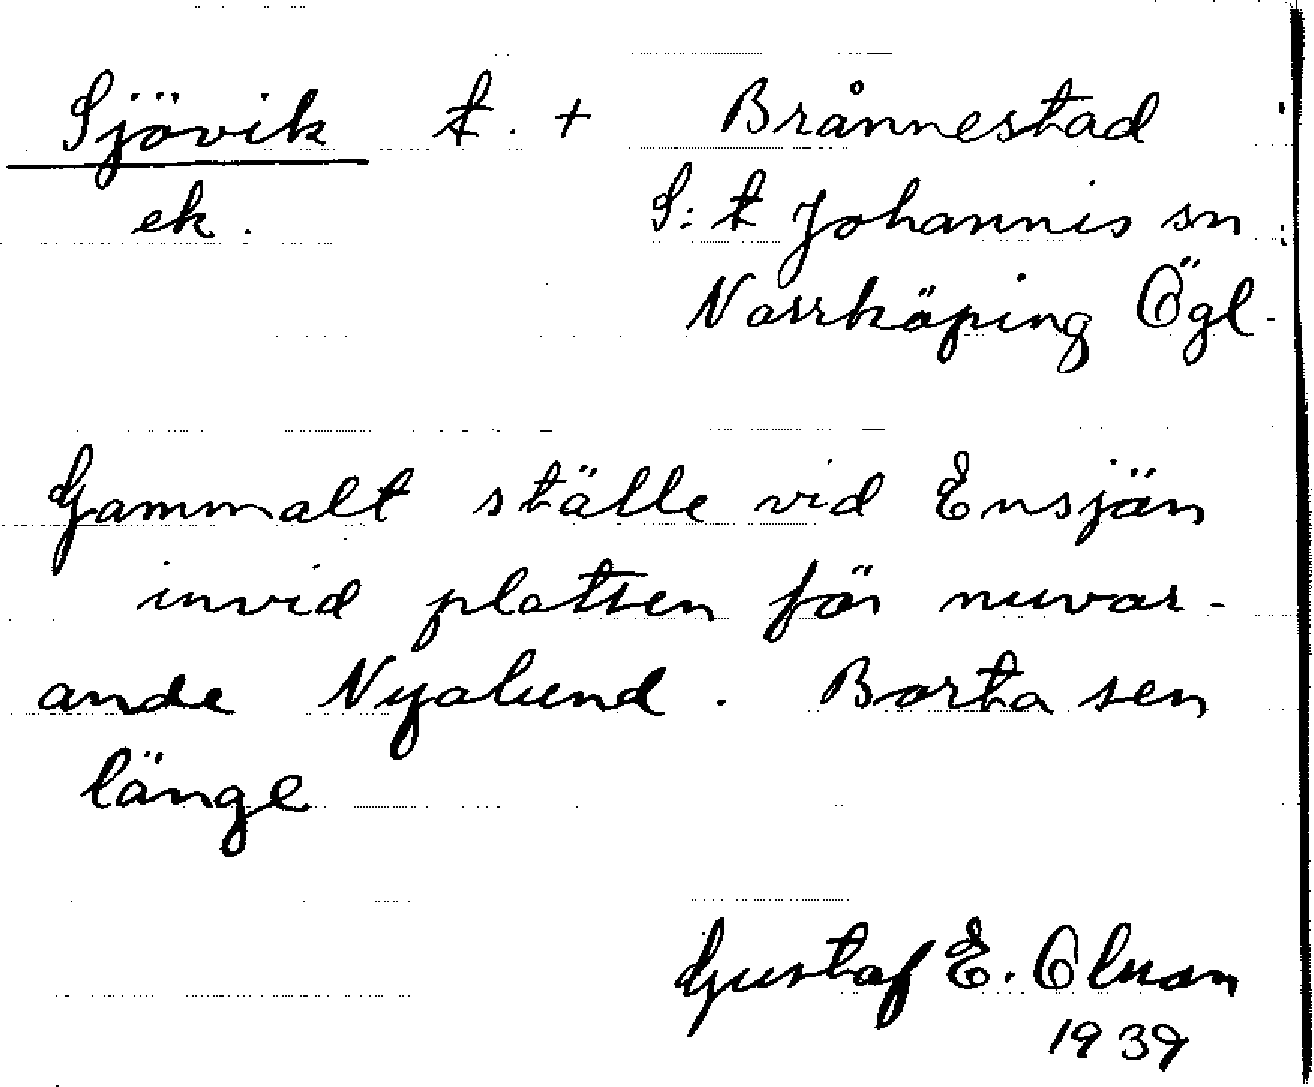 Sjövik t. + Brånnestad
ek. S:t Johannis sn
Norrköping Ögl.
Gammalt ställe vid Ensjön
invid platsen för nuvar-
ande Nyalund. Borta sen
länge
Gustaf E. Olsson
1939